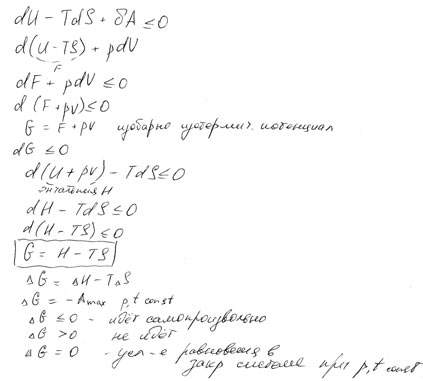 dU - TdS + δA ≤ 0
d(U - TS) + pdV
F
dF + pdV ≤ 0
d(F + pV) ≤ 0
G = F + pV изобарно изотермич. потенциал
dG ≤ 0
d(U + pV) - TdS ≤ 0
энтальпия H
dH - TdS ≤ 0
d(H - TS) ≤ 0
G = H - TS
ΔG = ΔH - TΔS
ΔG = -Amax p,t const
ΔG ≤ 0 - идёт самопроизвольно
ΔG > 0 не идёт
ΔG = 0 - усл-е равновесия в
закр системе при p,t const